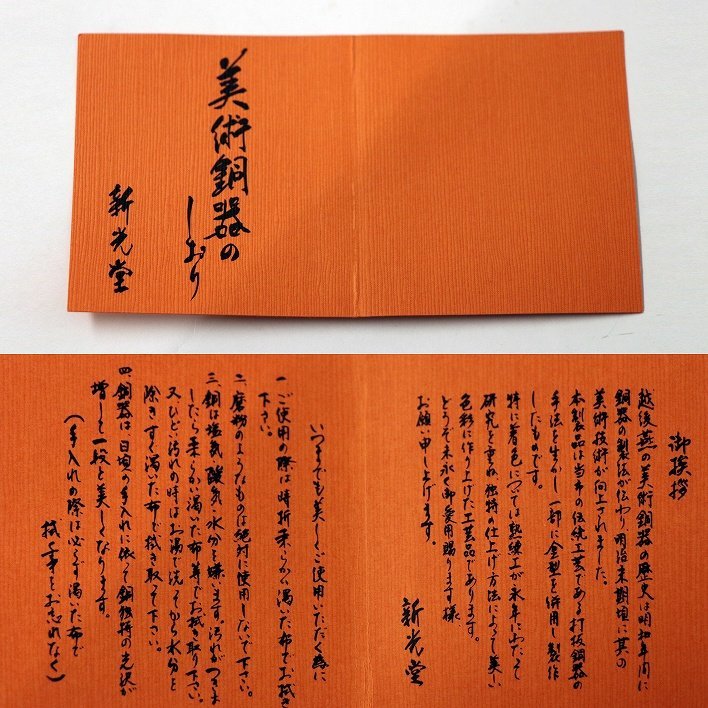 美術銅器の
しおり
新光堂
御挨拶
越後燕の美術銅器の歴史は明和年間に
銅器の製法が伝わり明治末期頃に其の
美術技術が向上されました。
本製品は当市の伝統工芸である打抜銅器の
手法を生かし一部に金型を併用し製作
したものです。
特に着色については熟練工が永年にわたって
研究を重ね独特の仕上げ方法によって美しい
色彩に作り上げた工芸品であります。
どうぞ末永く御愛用賜ります様
お願い申し上げます。
新光堂
いつまでも美しくご使用いただく為に
一、ご使用の際は時折柔らかい渇いた布でお拭き
下さい。
二、磨粉のようなものは絶対に使用しないで下さい。
三、銅は塩気、酸気、水分を嫌います。汚れがつきま
したら柔らかい渇いた布等でお拭き取り下さい。
又ひどい汚れの時はお湯で洗いそれから水分を
除きすぐ渇いた布で拭き取って下さい。
四、銅器は、日頃の手入れに依って銅独特の光沢が
増して一段と美しくなります。
(手入れの際は必らず渇いた布で
拭く事をお忘れなく)